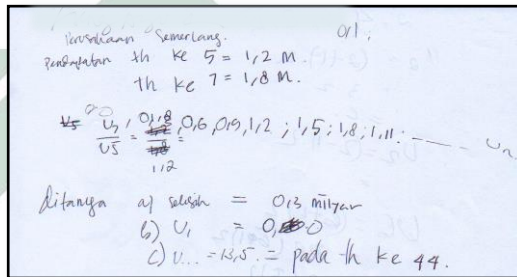 Perusahaan Semerlang. 0,1 ;
Pendapatan th ke 5 = 1,2 M.
th ke 7 = 1,8 M.
U7 / U5 = 1,8 / 1,2 = 0,6, 0,9, 1,2 ; 1,5 ; 1,8 ; 1,11 ; ------ Un
ditanya a/ selisih = 0,3 milyar
b) U1 = 0,0
c) U... = 13,5 . = pada th ke 44.